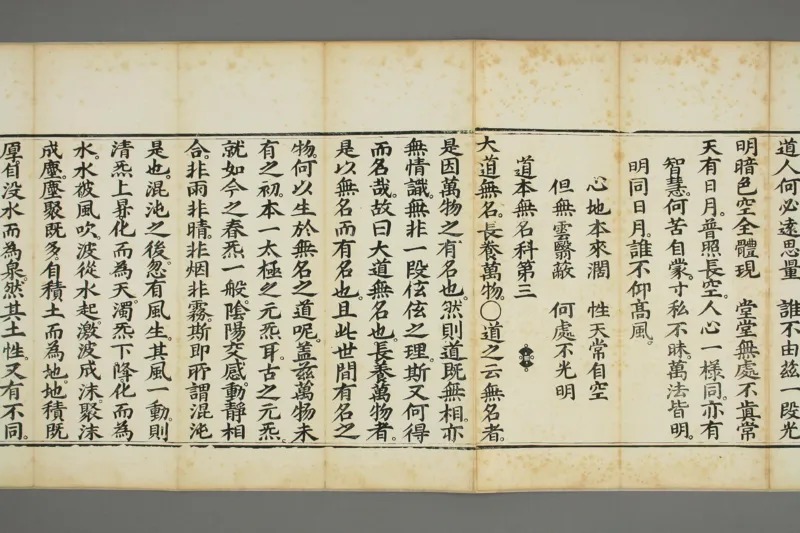 道人何必遠思量　誰不由茲一段光
明暗色空全體現　堂堂無處不真常
天有日月。普照長空。人心一樣同。亦有
智慧。何苦自蒙。寸私不昧。萬法皆明。
明同日月。誰不仰高風。
心地本來濶　性天常自空
但無雲翳蔽　何處不光明
道本無名科第三
大道無名。長養萬物。〇道之云無名者。
是因萬物之有名也。然則道既無相。亦
無情識。無非一段伭伭之理。斯又何得
而名哉。故曰大道無名也。長養萬物者。
是以無名而有名也。且此世間有名之
物。何以生於無名之道呢。蓋茲萬物未
有之初。本一太極之元炁耳。古之元炁。
就如今之春炁一般。陰陽交感。動靜相
合。非雨非晴。非烟非霧。斯即所謂混沌
是也。混沌之後。忽有風生。其風一動。則
清炁上昇。化而為天。濁炁下降。化而為
水。水被風吹。波從水起。激波成沫。聚沫
成塵。塵聚既多。自積土而為地。地積既
厚。自沒水而為泉。然其土性。又有不同。